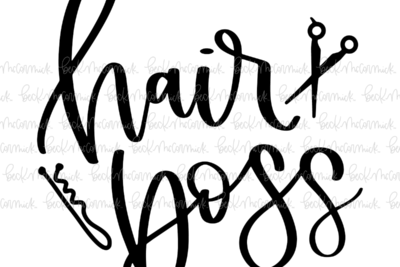 hair
boss